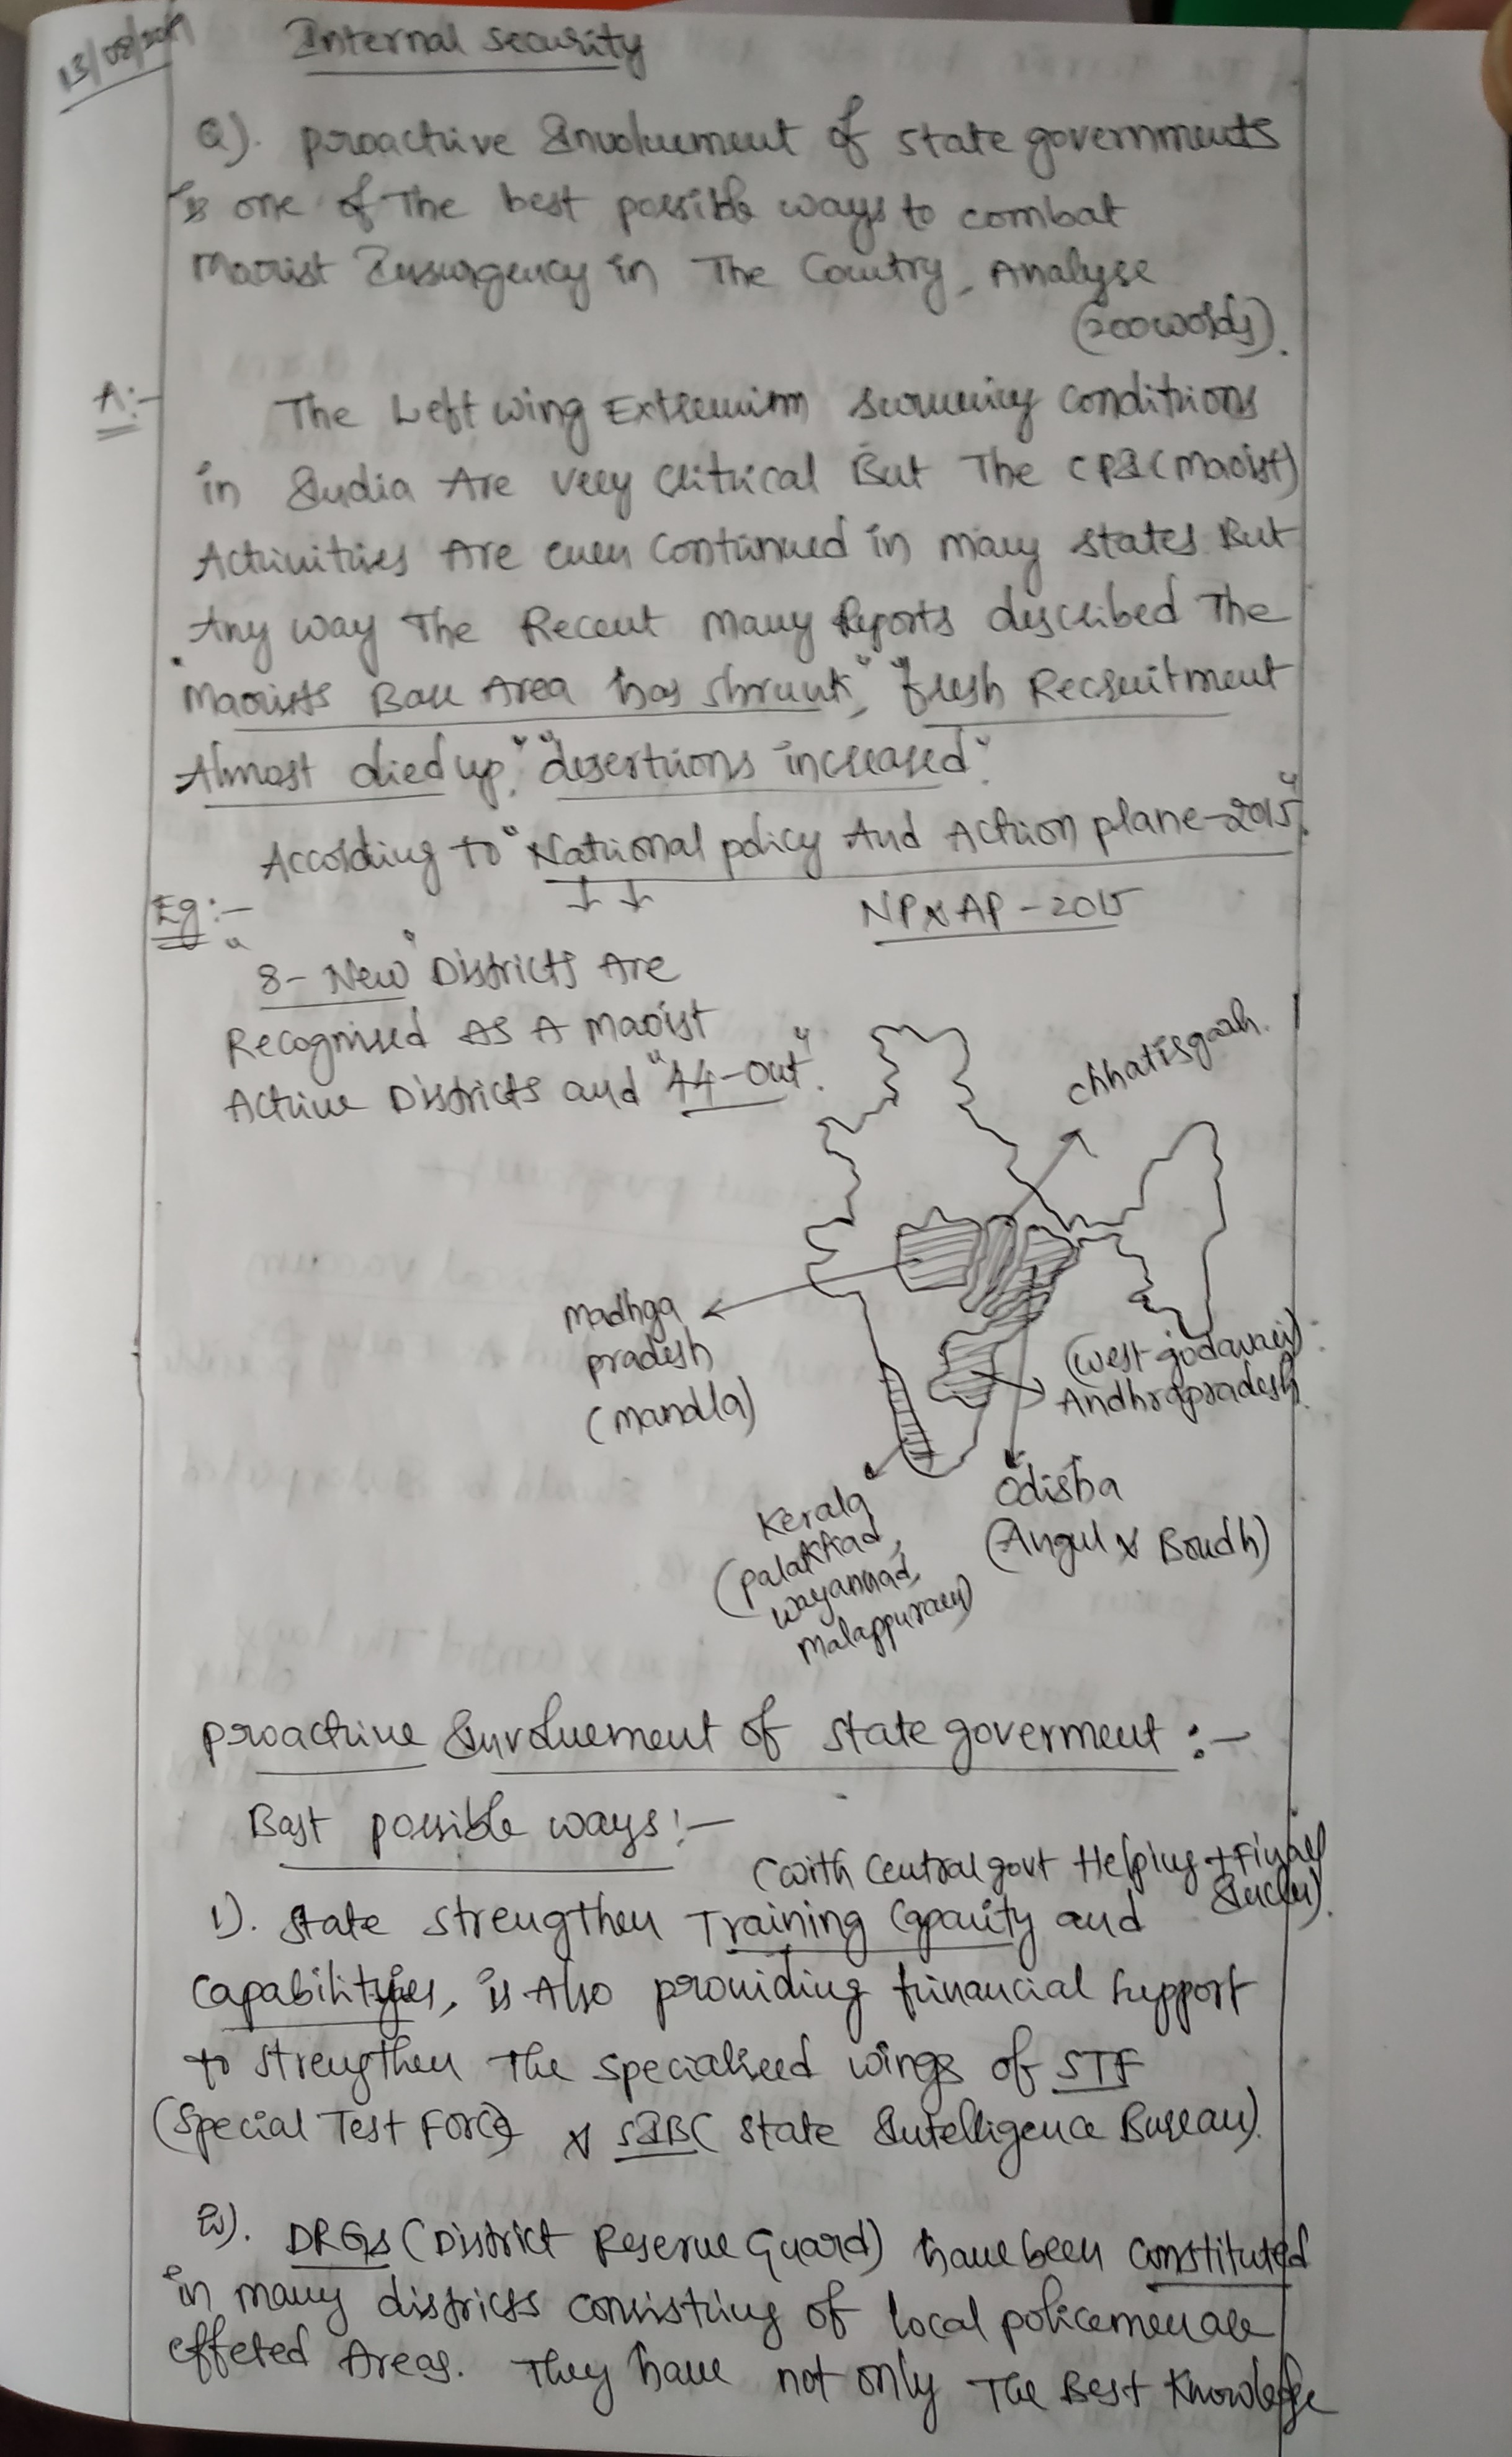 13/08/2019
Internal security
Q). proactive Involvement of state governments
is one of The best possible ways to combat
Maoist Insurgency in The Country, Analyse
(200 words).
A:-
The Left wing Extremism conditions
in India Are very Clitrical But The CPI (Maoist)
Activities Are even Continued in many states But
Any way The Recent many Reports described The
"Maoists Base Area has shrunk", "fresh Recruitment
Almost died up", "desertions increased".
According to "National policy And Action plane-2015".
NP & AP - 2015
Eg:-
"8- New" Districts Are
Recognised As A Maoist
Active Districts and "44-out".
chhatisgarh.
Madhya
pradesh
(Mandla)
(west godavari)
Andhrapradesh.
Odisha
(Angul & Boudh)
Kerala
(palakkad,
wayannad,
Malappuram)
proactive Involvement of state goverment :-
Bast possible ways:-
(with Central govt Helping +
1). State strengthen Training Capacity and
Capabilityies, is Also providing financial support
to strengthen The specialised wings of STF
(Special Test Force) & SIB( State Intelligence Bureau).
2). DRGs (District Reserve Guard) have been constituted
in many districts consisting of local policemen are
effeted Areas. They have not only The Best Knowledge